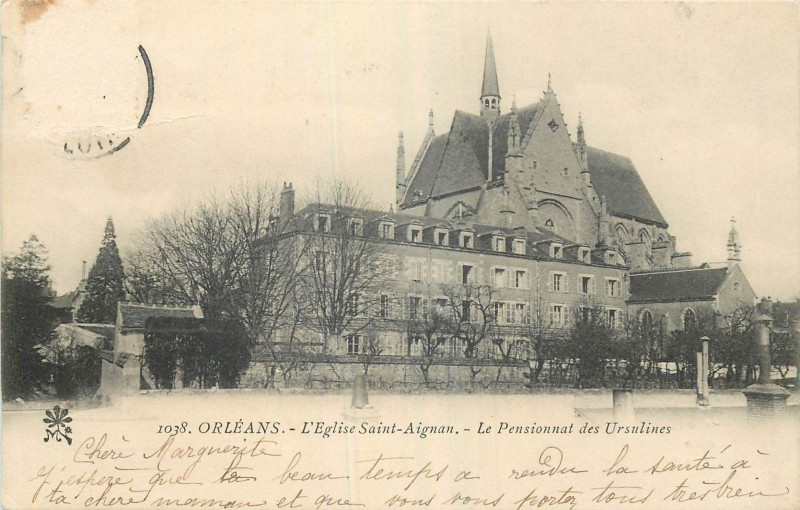 1038. ORLÉANS. - L'Eglise Saint-Aignan. - Le Pensionnat des Ursulines
Cherè Marguerite
J'espère que le beau temps a rendu la santé à
ta cherè maman et que vous vous portez tous très bien